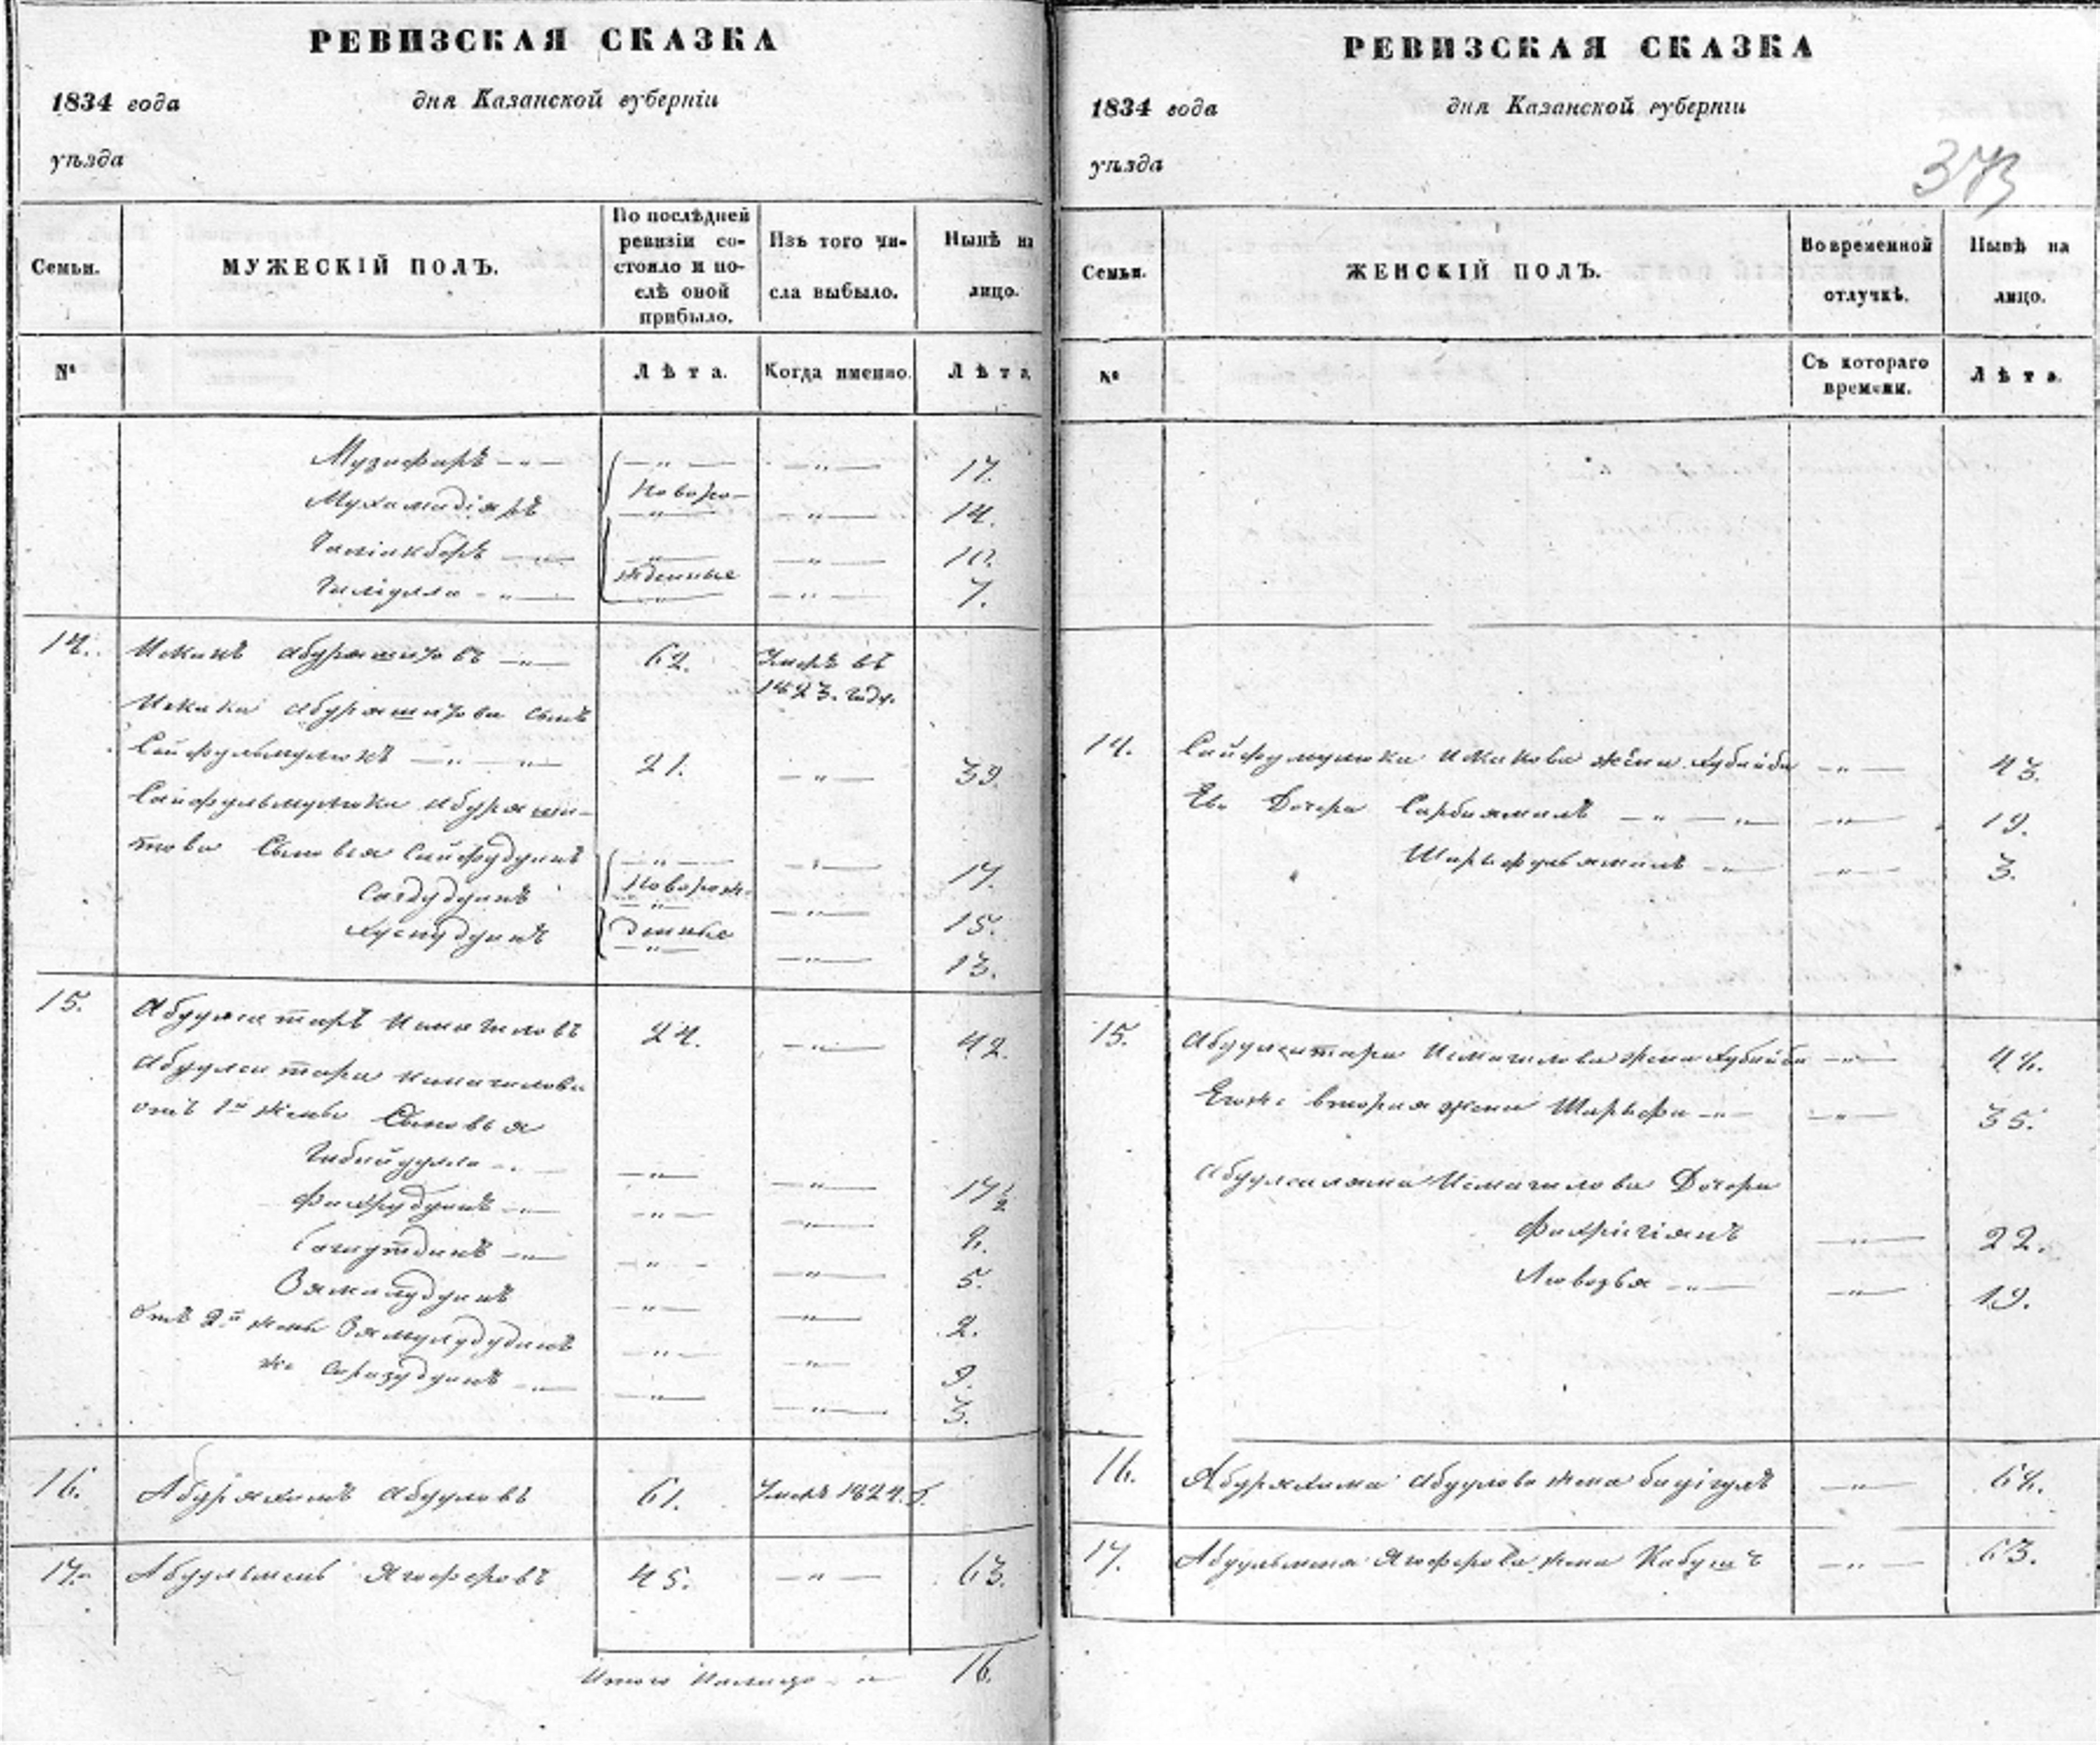 РЕВИЗСКАЯ СКАЗКА
1834 года дня Казанской губерніи
уѣзда
Семьи. МУЖЕСКІЙ ПОЛЪ. По послѣдней ревизіи со- стояло и по- слѣ оной прибыло. Изъ того чи- сла выбыло. Нынѣ на лицо.
№ Лѣта. Когда именно. Лѣта
Музафаръ 17.
Мухамадіяръ Новоро- 14.
Галіакберъ 10.
Галіулла жденные 7.
14. Исхакъ Абдряшитовъ 62. Умеръ въ
1823. году.
Исхака Абдряшитова сынъ
Сайфульмулюкъ 21. 39.
Сайфульмулюка Абдряши-
това Сыновья Сайфудинъ 17.
Садудинъ Новорож- 15.
Хуснудинъ денные 13.
15. Абдулсатаръ Исмагиловъ 24. 42.
Абдулсатара Исмагилова
отъ 1й жены Сыновья
Гибайдулла 17½
Фахрудинъ 8.
5.
2.
отъ 2й жены 9.
же 3.
16. Абдряхимъ Абдуловъ 61. Умеръ 1824. г.
17. Абдульменъ Ягоферовъ 45. 63.
Итого Налицо 16.
РЕВИЗСКАЯ СКАЗКА
1834 года дня Казанской губерніи
уѣзда
373
Семьи. ЖЕНСКІЙ ПОЛЪ. Во временной отлучкѣ. Нынѣ на лицо.
№ Съ котораго времени. Лѣта.
14. Сайфулмулюка Исхакова жена Хубайба 43.
Его Дочери 19.
3.
15. Абдулсатара Исмагилова жена Хубайба 48.
Егоже вторая жена Шарифа 35.
Абдулсаляма Исмагилова Дочери
22.
19.
16. Абдряхима Абдулова жена 68.
17. Абдульмена Ягоферова жена 63.